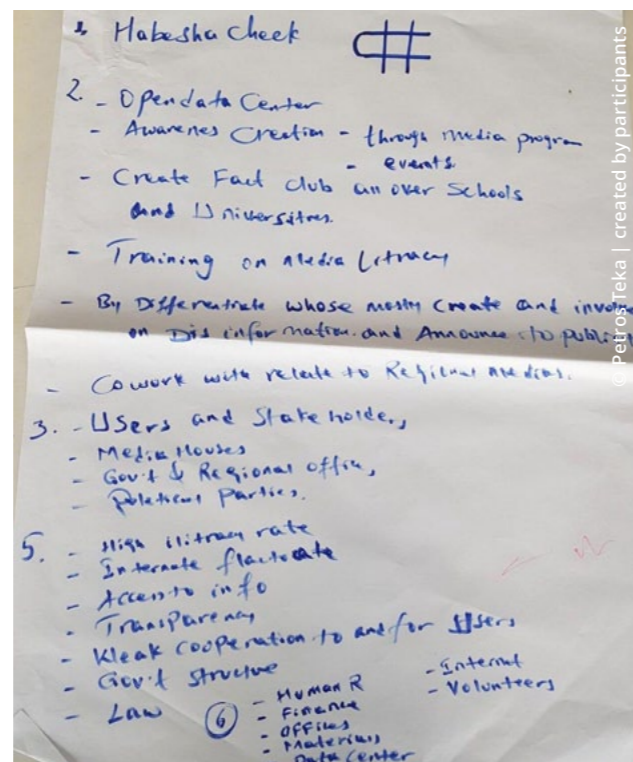 1. Habesha Check
2. - Opendata Center
- Awarenes Creation - through media program
- events
- Create Fact Club all over Schools
and Universitres.
- Training on Media Litracy
- By Differentiate whose mostly Create and involve
on Dis information. and Announce to public
- Cowork with relate to Regional medias.
3. - Users and Stakeholders
- Media Houses
- Gov't & Regional offices
- Political Parties.
5. - High ilitracy rate
- Internate flactuate
- Access to info
- Transparency
- Weak cooperation to and for Users
- Gov't structure
- Law
- Internet
- Volunteers
6 - Human R
- Finance
- Offices
- Materials
Data Center
© Petros Teka | created by participants